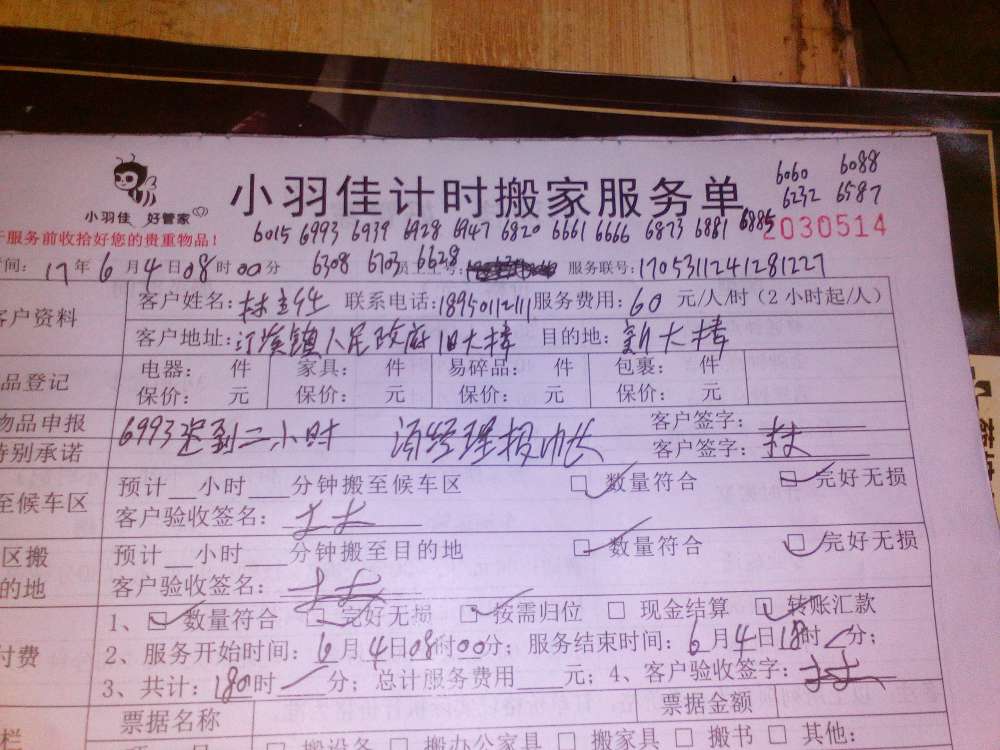 6060 6088
6232 6587
小羽佳 好管家
小羽佳计时搬家服务单
服务前收拾好您的贵重物品!
6015 6993 6939 6928 6947 6820 6661 6666 6873 6881 6885
2030514
间: 17年6月4日08时00分 6308 6703 6628 号: 服务联号: 1705311241281227
客户资料 客户姓名: 林 联系电话: 18950112111 服务费用: 60 元/人/时 (2小时起/人)
客户地址: 汀溪镇人民政府旧大楼 目的地: 新大楼
品登记 电器: 件 家具: 件 易碎品: 件 包裹: 件
保价: 元 保价: 元 保价: 元 保价: 元
物品申报 客户签字:
特别承诺 6993迟到二小时 客户签字: 林
至候车区 预计 小时 分钟搬至候车区 数量符合 完好无损
客户验收签名: 林
区搬 预计 小时 分钟搬至目的地 数量符合 完好无损
的地 客户验收签名: 林
1、 数量符合 完好无损 按需归位 现金结算 转账汇款
付费 2、服务开始时间: 6月4日08时00分; 服务结束时间: 6月4日18时 分;
3、共计: 180时 分; 总计服务费用 元; 4、客户验收签字: 林
票据名称 票据金额
栏 搬设备 搬办公家具 搬家具 搬书 其他: